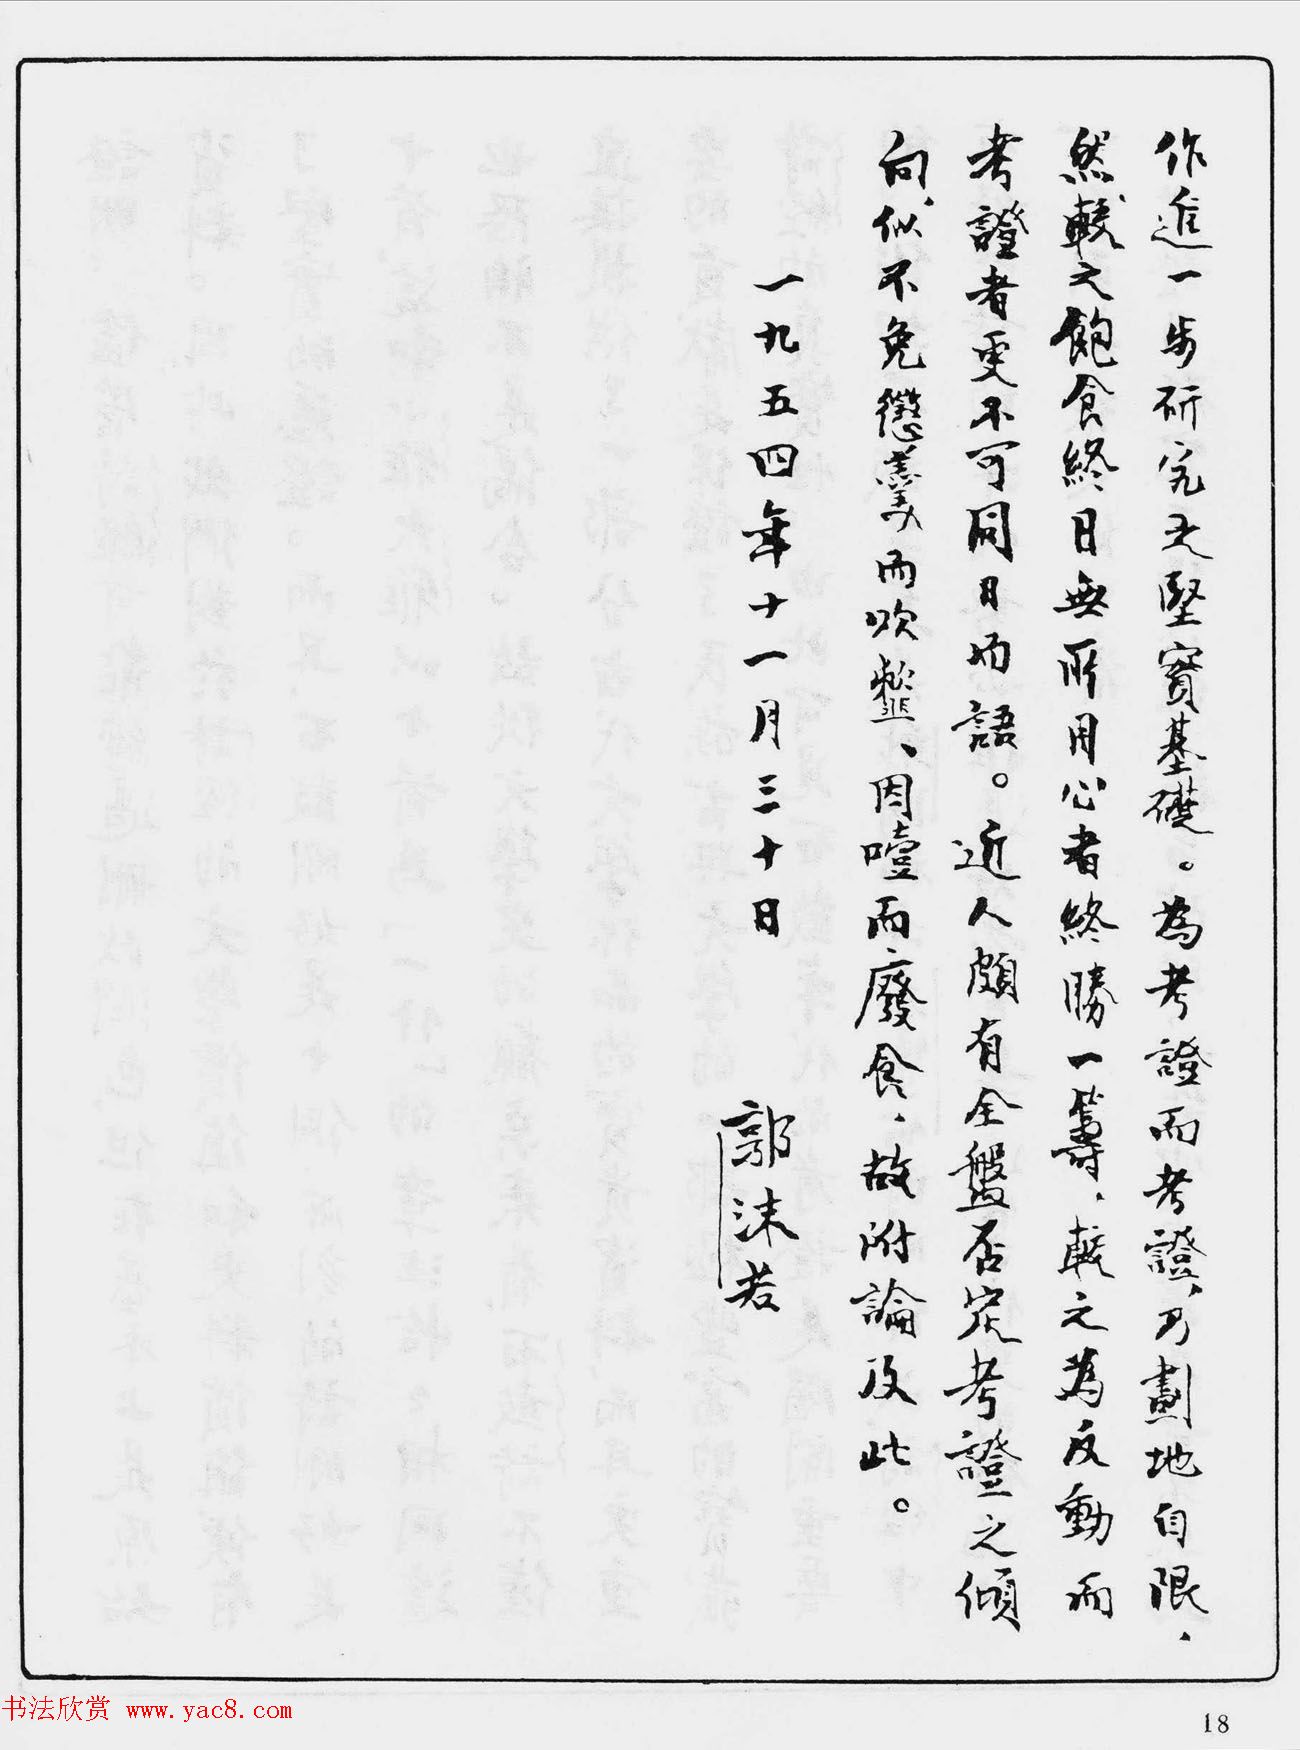 作進一步研究之堅實基礎。為考證而考證，乃劃地自限，
然較之飽食終日無所用心者終勝一籌，較之為反動而
考證者更不可同日而語。近人頗有全盤否定考證之傾
向，似不免懲羹而吹虀、因噎而廢食，故附論及此。
一九五四年十一月三十日
郭沫若
书法欣赏 www.yac8.com
18